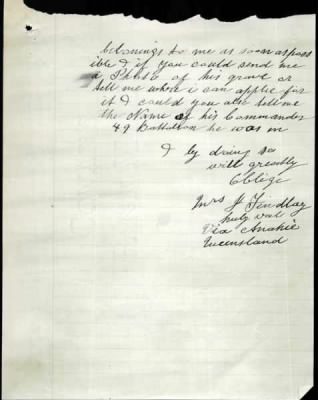 belonings to me as soon as poss
ible & if you could send me
a Photo of his grave or
tell me where i can applie for
it & could you also tell me
the Name of his Commander
49 Battalion he was in
& by doing so
will greatly
Oblige
Mrs J Findlay
Via Anakie
Queensland